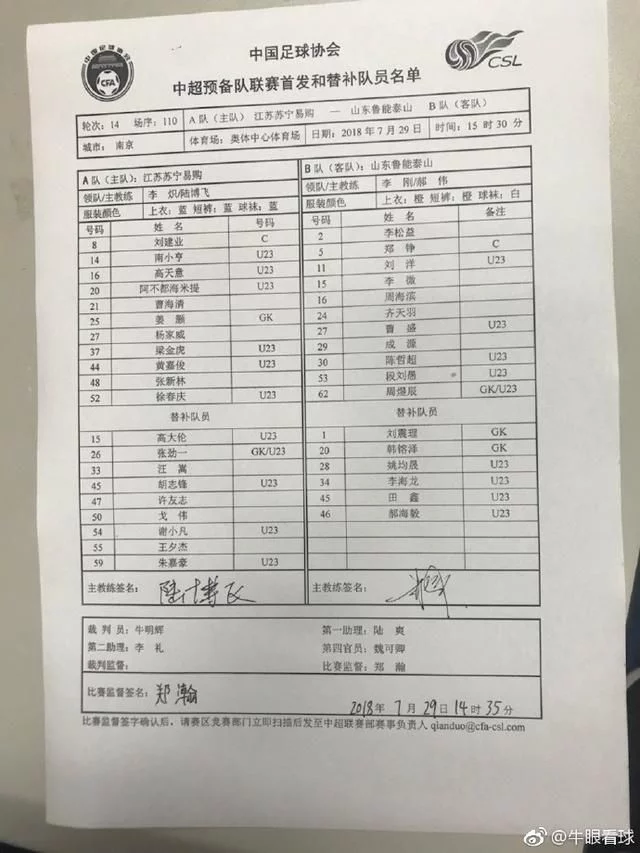 中国足球协会
中超预备队联赛首发和替补队员名单
CFA
CSL
轮次：14 场序：110 A队（主队） 江苏苏宁易购 — 山东鲁能泰山 B队（客队）
城市： 南京 体育场：奥体中心体育场 日期：2018年7月29日 时间：15时30分
A队（主队）：江苏苏宁易购
领队/主教练 李 炽/陆博飞
服装颜色 上衣：蓝 短裤：蓝 球袜：蓝
号码 姓 名 号码
8 刘建业 C
14 南小亨 U23
16 高天意 U23
20 阿不都海米提 U23
21 曹海清
25 姜 灏 GK
27 杨家威
37 梁金虎 U23
44 黄嘉俊 U23
48 张新林
52 徐春庆 U23
替补队员
15 高大伦 U23
26 张劲一 GK/U23
33 汪 嵩
45 胡志锋 U23
47 许友志
50 戈 伟
54 谢小凡 U23
55 王夕杰
59 朱嘉豪 U23
主教练签名： 陆博飞
B队（客队）：山东鲁能泰山
领队/主教练 李 刚/郝 伟
服装颜色 上衣：橙 短裤：橙 球袜：白
号码 姓 名 备注
2 李松益
5 郑 铮 C
11 刘 洋 U23
15 李 微
16 周海滨
24 齐天羽
27 曹 盛 U23
29 成 源
30 陈哲超 U23
53 段刘愚 U23
62 周煜辰 GK/U23
替补队员
1 刘震理 GK
20 韩镕泽 GK
28 姚均晟 U23
34 李海龙 U23
45 田 鑫 U23
46 郝海毅 U23
主教练签名：
裁 判 员：牛明辉 第一助理：陆 爽
第二助理：李 礼 第四官员：魏可卿
裁判监督： 比赛监督：郑 瀚
比赛监督签名： 郑瀚 2018年7月29日14时35分
比赛监督签字确认后，请赛区竞赛部门立即扫描后发至中超联赛部赛事负责人 qianduo@cfa-csl.com
@牛眼看球